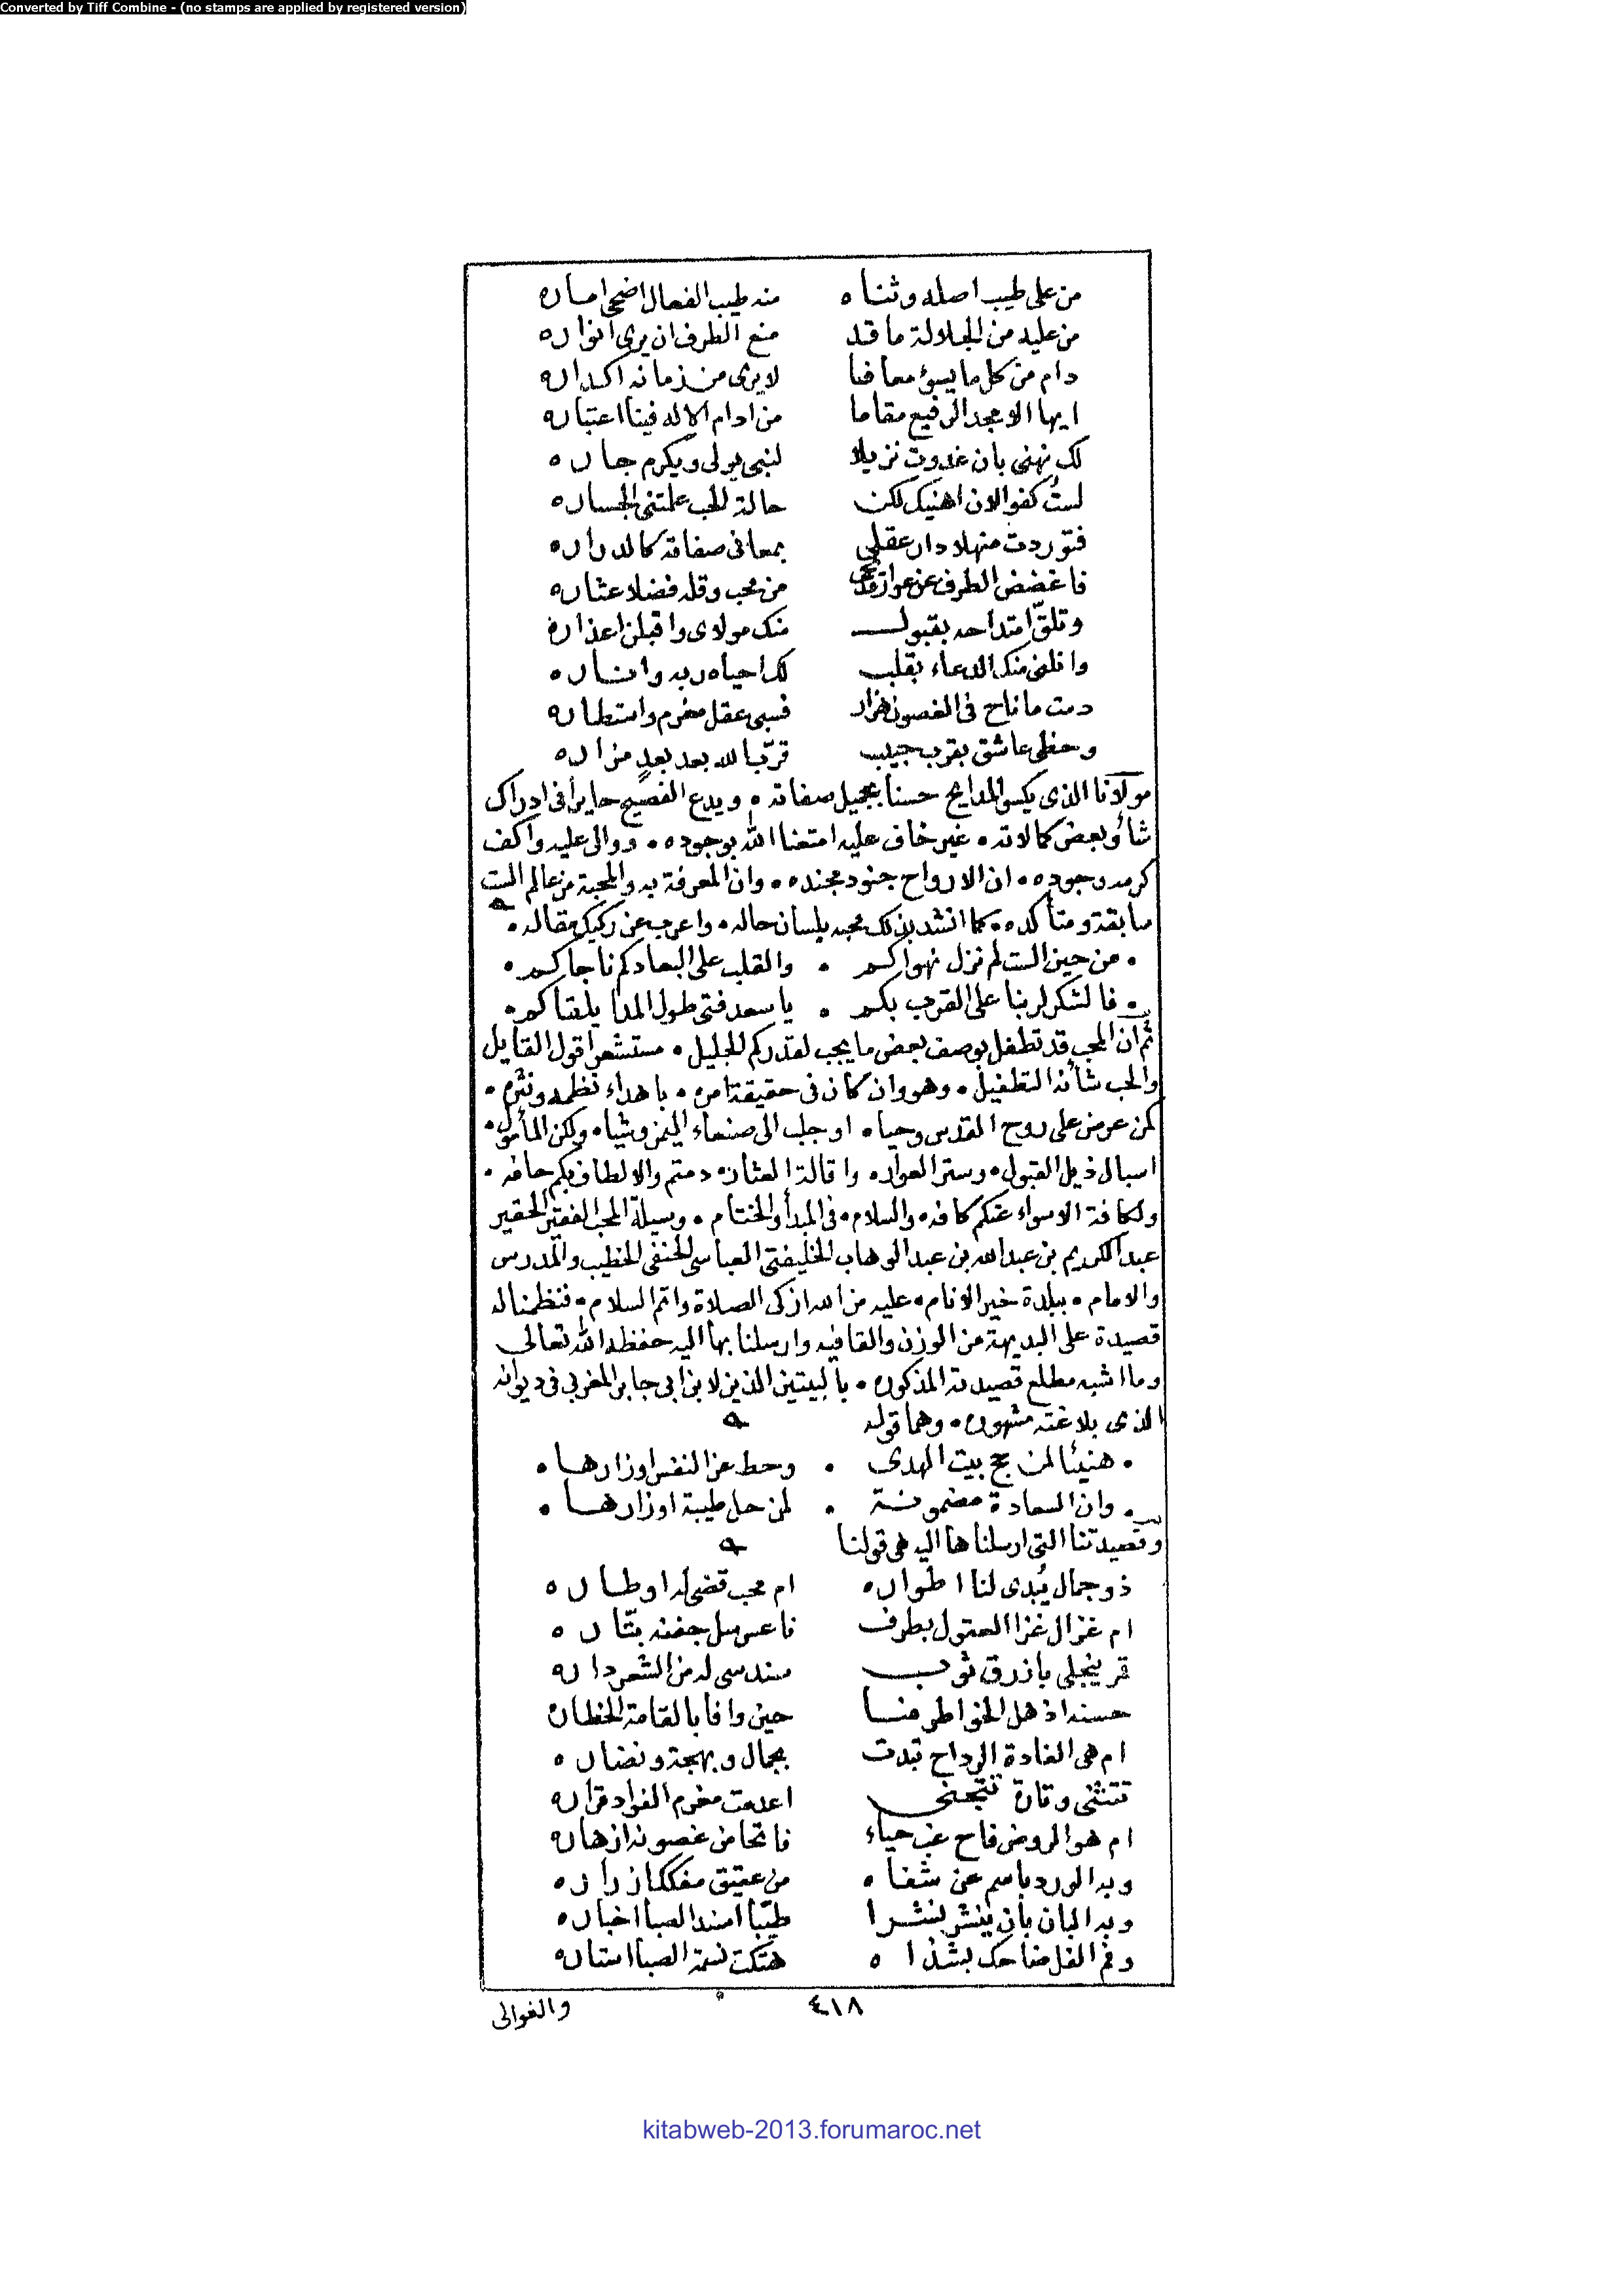 Converted by Tiff Combine - (no stamps are applied by registered version)
من على طيب اصله وثناه منه طيب الفعال اضحى اماره
من عليه من الجلالة ما قد منع الطرف ان يرى انواره
دام من كل ما يسؤ معافا لا يرى من زمانه اكداره
ايها الامجد الرفيع مقاما من ادام الاله فينا اعتباره
لك نهنى بان غدوت نزيلا لنبى يولى ويكرم جاره
لستُ كفوا لان اهنيك لكن حالة الحب علمتنى الجساره
فتوردت منهلا دار عقلي بمعانى صفاته كالدراره
فاغضض الطرف عن عوار من محب وقله فضلا عثاره
وتلقّ امتداحه بقبول منك مولاى واقبلن اعذاره
وانلنى منك الدعاء بقلب لك احياه ربه واناره
دمت ما ناح فى الغصون هزار فسبى عقل مغرم واستطاره
وحظى عاشق بقرب حبيب قرّب الله بعد بعدٍ مزاره
مولانا الذى يكسى المدايح حسنا بجميل صفاته ٠ ويدع الفصيح حايراً فى ادراك
شاؤ بعض كمالاته ٠ غير خاف عليه امتعنا الله بوجوده ٠ ووالى عليه واكف
كرمه وجوده ٠ ان الارواح جنود مجنده ٠ وان المعرفة به والمحبة من عالم الست
سابقة ومتأكده ٠ كما انشد بذلك محبه بلسان حاله ٠ واعرب عن ركيك مقاله ٠
٠ من حين الست لم نزل نهواكم ٠ والقلب على البعاد كم ناجاكم ٠
٠ فالشكر لربنا على القرب بكم ٠ يا سعد فتى طول المدا يلقاكم ٠
ثم ان المحب قد تطفل بوصف بعض ما يجب لقدركم الجليل ٠ مستشعرا قول القايل
والحب شأنه التطفيل ٠ وهو وان كان فى حقيقة امره ٠ باهداء نظمه ونثره ٠
كمن عرض على روح القدس وحياه ٠ او جلب الى صنعاء اليمن وشياه ٠ ولكن المأمول ٠
اسبال ذيل القبول ٠ وستر العوار ٠ واقالة العثار ٠ دمتم والالطاف بكم حافه ٠
ولكافة الاسواء عنكم كافه ٠ والسلام ٠ فى المبدأ والختام ٠ وسيلة المحب الفقير الحقير
عبد الكريم بن عبد الله بن عبد الوهاب الخليفتى العباسى الحنفى الخطيب والمدرس
والامام ٠ ببلدة خير الانام ٠ عليه من الله ازكى الصلاة واتم السلام ٠ فنظمنا له
قصيدة على البديهة من الوزن والقافيه وارسلنا بها اليه حفظه الله تعالى
وما اشبه مطلع قصيدته المذكوره ٠ بالبيتين الذين لابن ابى جابر المغربى فى ديوانه
الذى بلاغته مشهوره ٠ وهما قوله
٠ هنيئا لمن حج بيت الهدى ٠ وحط عن النفس اوزارها ٠
٠ وان السعادة مضمونة ٠ لمن حل طيبة او زارها ٠
وقصيدتنا التى ارسلناها اليه هى قولنا
ذو جمال يُبدى لنا اطواره ام محب قضى له اوطاره
ام غزال غزا العقول بطرف ناعس سل جفنه بتّاره
قمر ينجلى بازرق ثوب سندسى له من الشعر داره
حسنه اذهل الخواطر منا حين وافا بالقامة الخطاره
ام هى الغادة الرداح تبدت بجمال وبهجة ونضاره
تتثنى وتارة تتجنى اعدمت مغرم الفواد قراره
ام هو الروض فاح غب حياء فاتحا من غصونه ازهاره
وبه الورد باسم عن شفاه من عقيق مفككا ازراره
وبه البان بان ينشر نشرا طيّبا اسند الصبا اخباره
وفم الفل ضاحك بشذاه هتكت نسمة الصبا استاره
٤١٨
والغوالى
kitabweb-2013.forumaroc.net